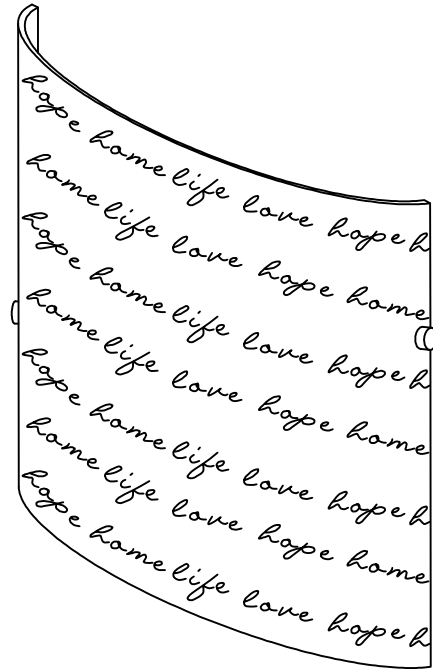 hope home life love hope h
home life love hope home
hope home life love hope h
home life love hope home
hope home life love hope h
home life love hope home
hope home life love hope h